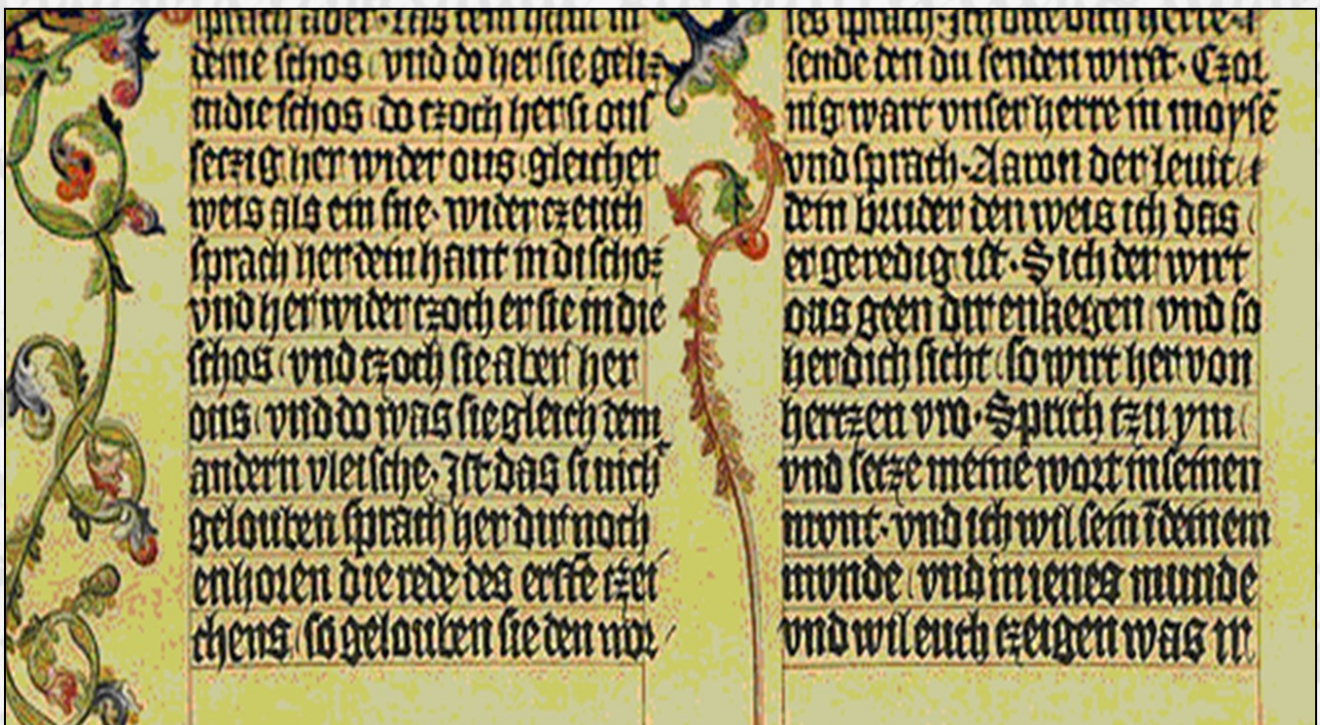 sprach aber· las dein hant in
deine schos vnd do her sie geli⸗
indie schos do tzoch her si ous
setzig her wider ous gleicher
weis als ein sne· wider tzeuch
sprach her dein hant in di scho⸗
vnd her wider tzoch er sie in die
schos vnd tzoch sie aber her
ous vnd do was sie gleich dem
andern vleische· Ist das si nich
gelouben sprach her dir noch
enhoren die rede des erstē tzei
chens so gelouben sie den wor
sprach· Ich bitte dich herre·
sende den du senden wirst· Czor
nig wart vnser herre in moysē
vnd sprach· Aaron der leuit
dein bruder den weis ich das
er geredig ist· Sich der wirt
ous geen dir enkegen vnd so
her dich sicht so wirt her von
hertzen vro· Sprich tzu ym
vnd setze meine wort in seinen
mont· vnd ich wil sein ī deinem
munde vnd in ienes munde
vnd wil euch tzeigen was ir